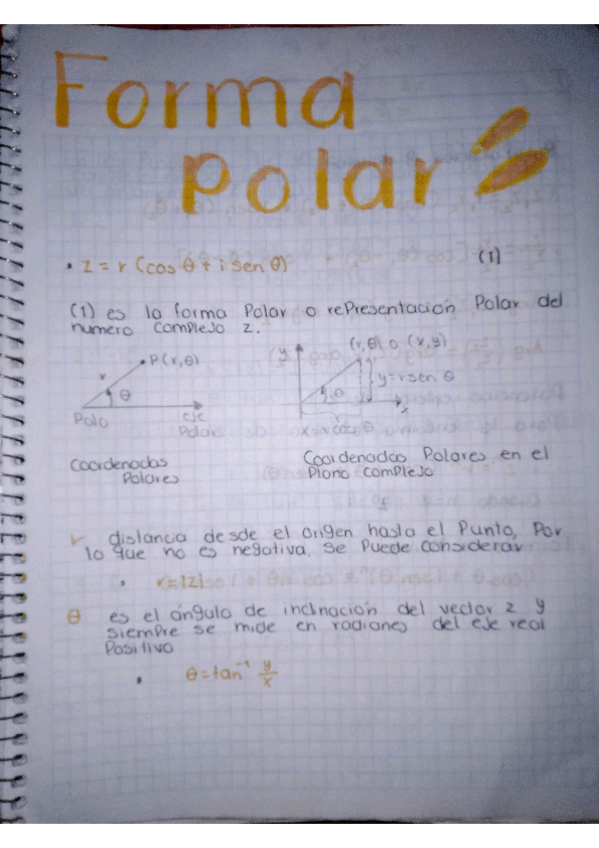 Forma
Polar
• z = r (cos θ + i sen θ) (1)
(1) es la forma Polar o rePresentación Polar del
numero complejo z.
P(r,θ)
r
θ
Polo
eje
Polar
(r,θ) o (x,y)
y
y=rsen θ
θ
x
x=rcos θ
Coordenadas
Polares
Coordenadas Polares en el
Plano complejo
r distancia desde el origen hasta el Punto, Por
lo que no es negativa. Se Puede considerar
• r=|z|
θ es el ángulo de inclinación del vector z y
siempre se mide en radianes del eje real
Positivo
• θ=tan⁻¹ y/x